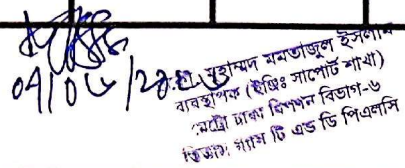 04/06/20
মুহাম্মদ মমতাজুল ইসলাম
ব্যবস্থাপক (ইঞ্জিঃ সাপোর্ট শাখা)
মেট্রো ঢাকা বিপণন বিভাগ-৬
তিতাস গ্যাস টি এন্ড ডি পিএলসি